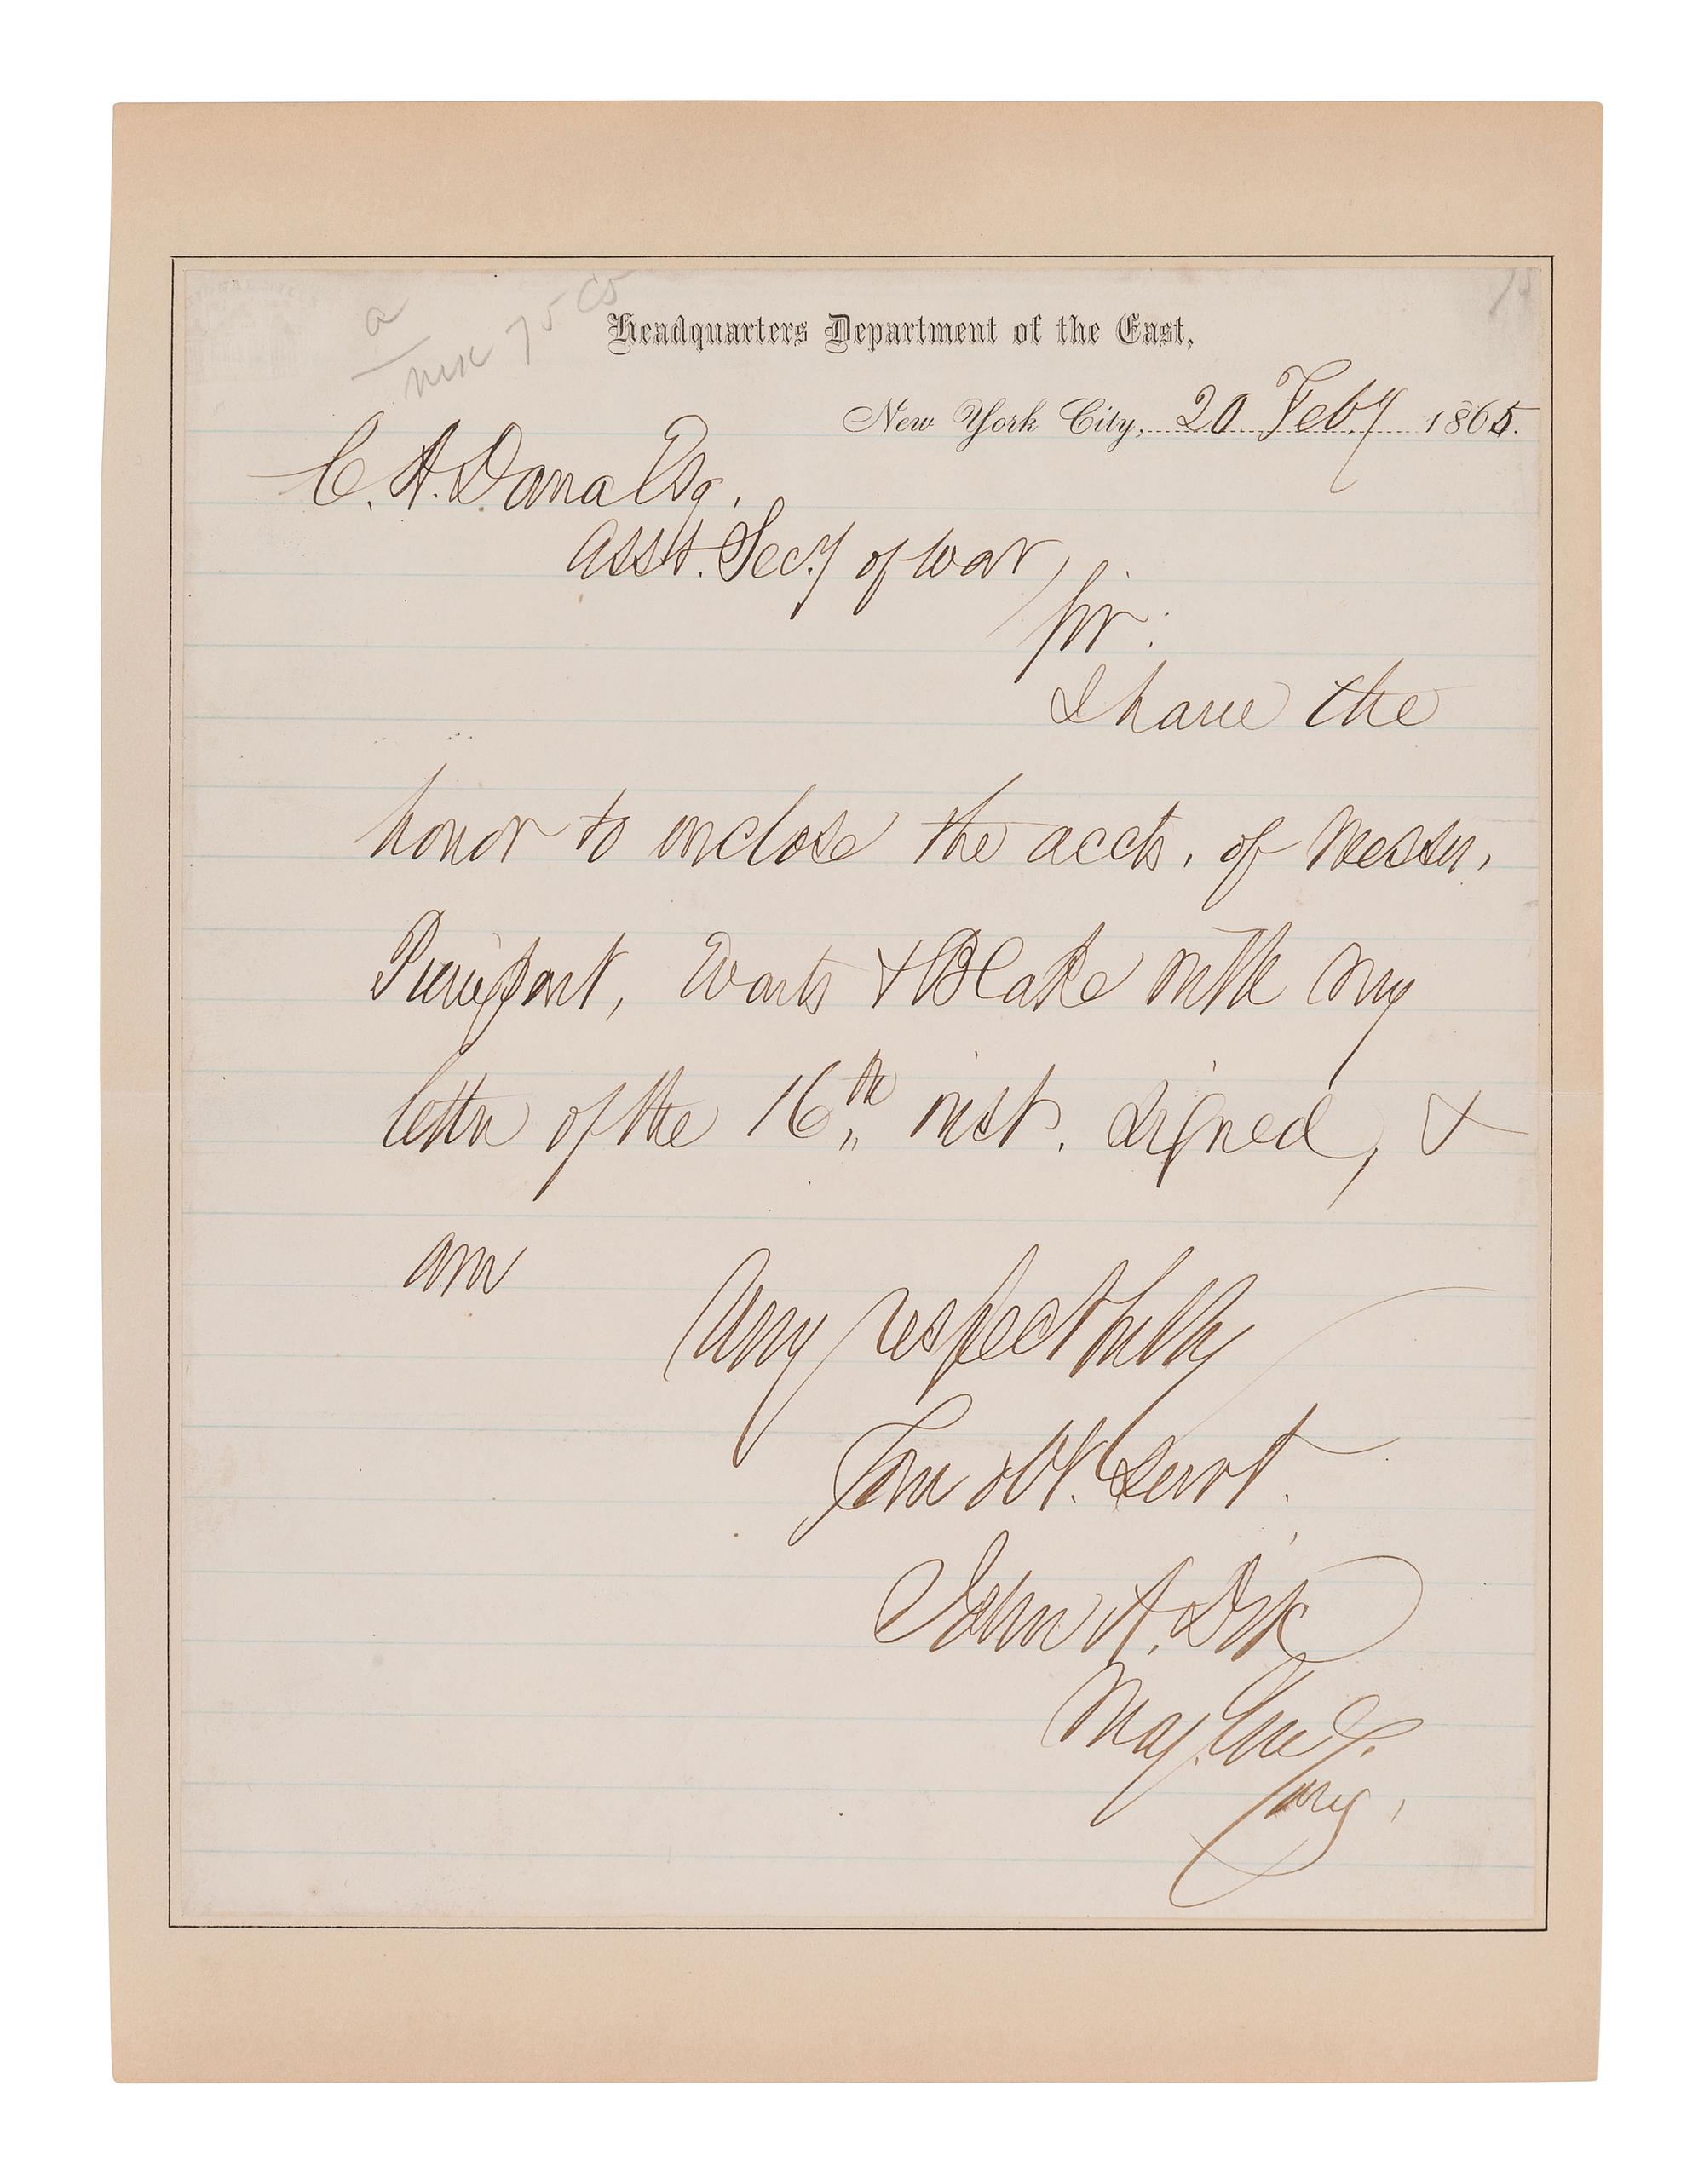 Headquarters Department of the East,
New York City, 20 Feby 1865.
C. A. Dana Esq.
Asst. Secy of War,
Sir:
I have the
honor to inclose the accts. of Messrs.
Pierrepont, Evarts & Blake with my
letter of the 16th inst. signed, &
am
Very respectfully
Your obt. Servt.
John A. Dix
Maj. Genl.